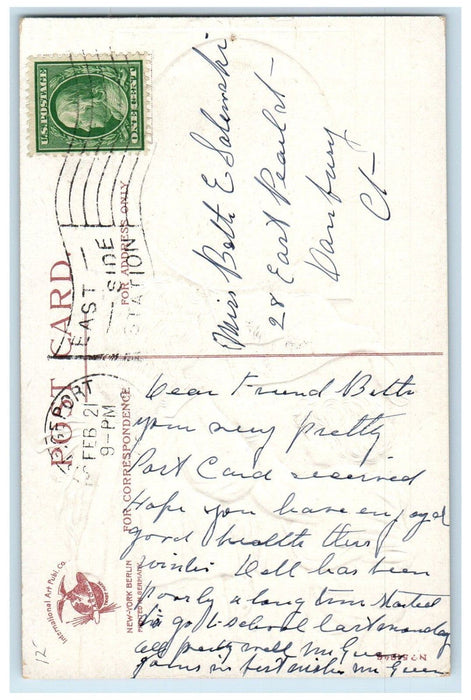 U.S. POSTAGE
ONE 1 CENT
BRIDGEPORT
FEB 21
9-PM
EAST
SIDE
STATION
POST CARD
FOR ADDRESS ONLY
FOR CORRESPONDENCE
Miss Beth E
28 East Pearl st
Danbury
Ct
Dear Friend Beth
your very pretty
Post Card received
Hope you have enjoyed
good health this
winter Dell has been
Poorly a long time started
to go to school last monday
all pretty well Mr
joins in best wishes Mr
International Art Publ. Co.
NEW-YORK BERLIN
PRINTED IN GERMANY
12